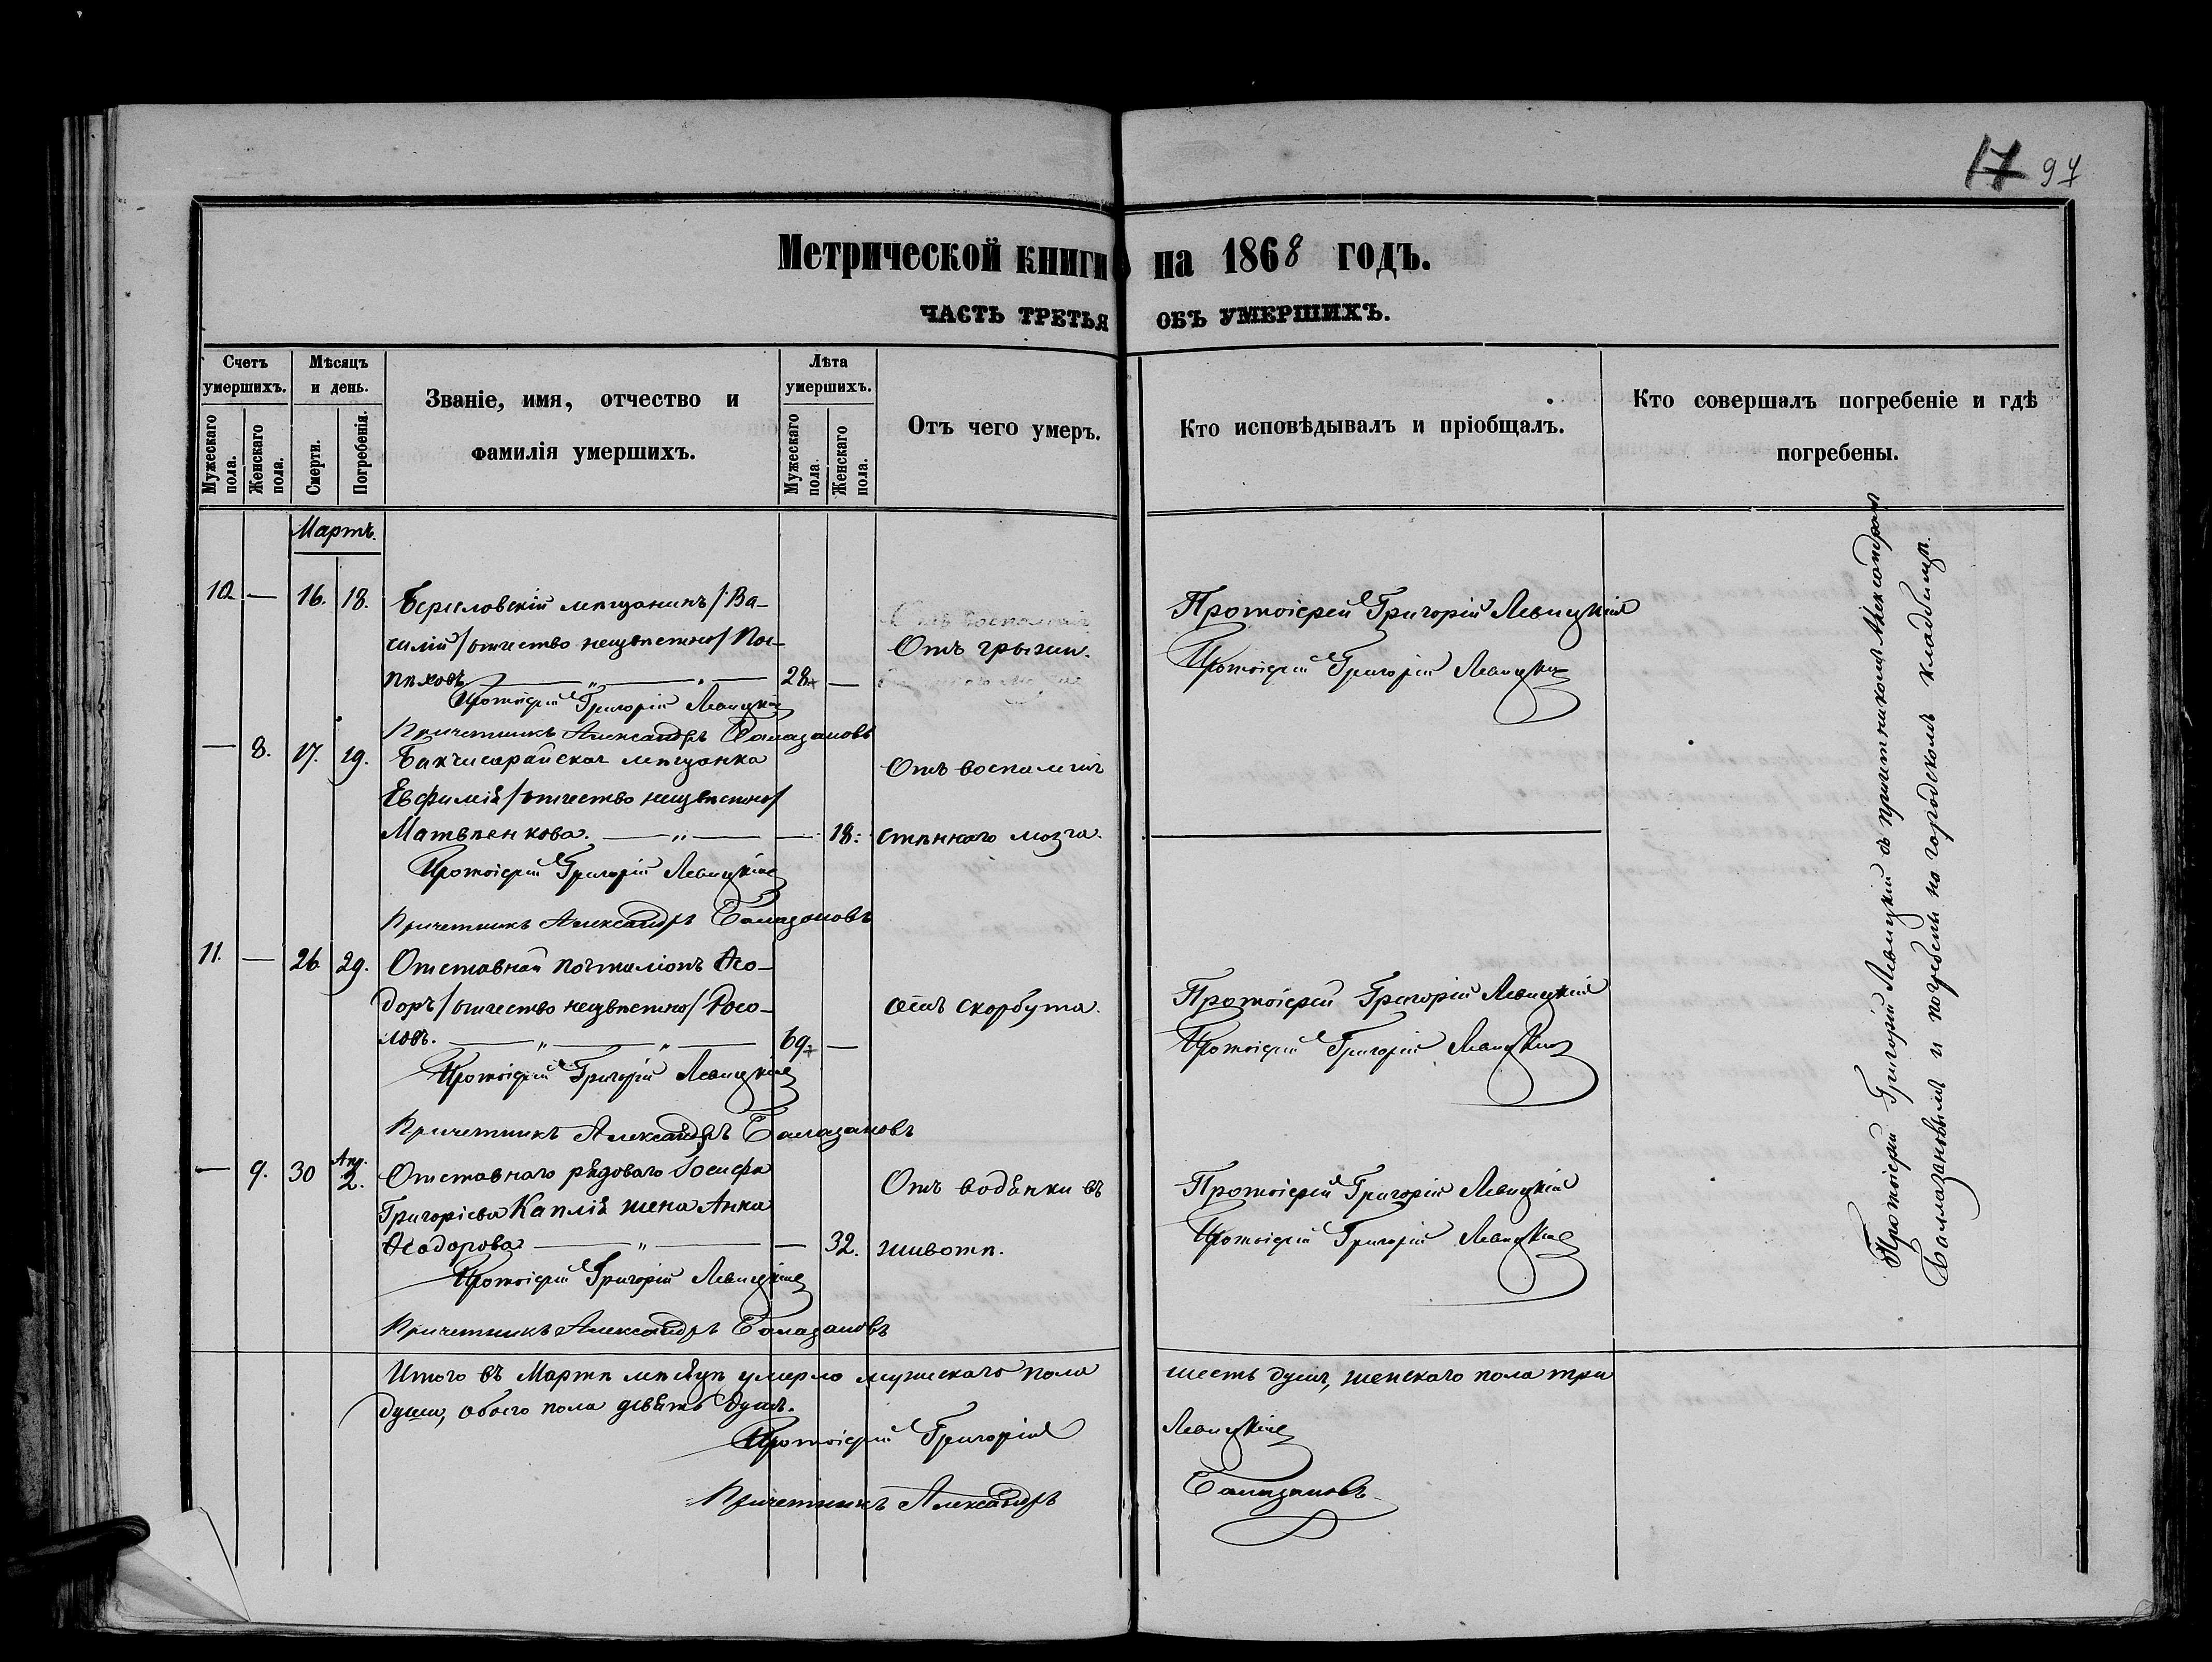 17 97
Метрической книги на 1868 годъ.
ЧАСТЬ ТРЕТЬЯ ОБЪ УМЕРШИХЪ.
Счетъ умершихъ.
Мужескаго пола.
Женскаго пола.
Мѣсяцъ и день.
Смерти.
Погребенія.
Званіе, имя, отчество и
фамилія умершихъ.
Лѣта умершихъ.
Мужескаго пола.
Женскаго пола.
Отъ чего умеръ.
Кто исповѣдывалъ и пріобщалъ.
Кто совершалъ погребеніе и гдѣ
погребены.
Мартъ.
10 — 16. 18. Береловскій мѣщанинъ /Ва-
силій /отчество неизвѣстно/
28 —
Отъ грыжи.
Протоіерей Григорій Левицкій
Протоіерей Григорій Левицкій
Протоіерей Григорій Левицкій
Причетникъ Александръ Балазановъ
— 8. 17. 19. Бакчисарайская мѣщанка
Евфимія /отчество неизвѣстно/
Матвѣенкова. — „ — — 18.
Отъ воспаленія
спиннаго мозга.
Протоіерей Григорій Левицкій
Причетникъ Александръ Балазановъ
11. — 26 29. Отставной почталіонъ Ѳео-
доръ /отчество неизвѣстно/ Росо-
ловъ. — „ — „ — 69 —
отъ скорбута.
Протоіерей Григорій Левицкій
Протоіерей Григорій Левицкій
Протоіерей Григорій Левицкій
Причетникъ Александръ Балазановъ
— 9. 30 Апр. 2. Отставнаго рядоваго Іосифа
Григорьева Каплія жена Анна
Ѳеодорова — „ — — 32.
Отъ водянки въ
животѣ.
Протоіерей Григорій Левицкій
Протоіерей Григорій Левицкій
Протоіерей Григорій Левицкій
Причетникъ Александръ Балазановъ
Протоіерей Григорій Левицкій съ причетникомъ Александромъ
Балмазановымъ и погребены на городскомъ кладбищѣ.
Итого въ Мартѣ мѣсяцѣ умерло мужескаго пола шесть душъ, женскаго пола три
души, обоего пола девять душъ.
Протоіерей Григорій Левицкій
Причетникъ Александръ Балазановъ